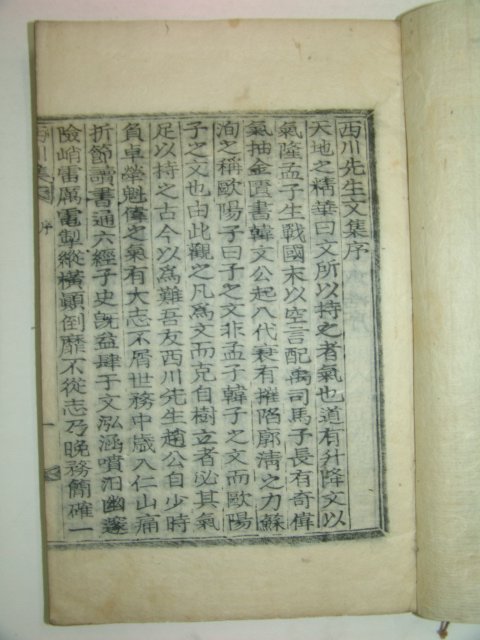 西川先生文集序
天地之精華曰文所以持之者氣也道有升降文以
氣隆孟子生戰國末以空言配禹司馬子長有奇偉
氣抽金匱書韓文公起八代衰有摧陷廓清之力蘇
洵之稱歐陽子曰子之文非孟子韓子之文而歐陽
子之文也由此觀之凡爲文而克自樹立者必其氣
足以持之古今以爲難吾友西川先生趙公自少時
負卓犖魁偉之氣有大志不屑世務中歲入仁山痛
折節讀書通六經子史旣益肆于文泓涵噴汨幽邃
險峭雷厲電掣縱橫顚倒靡不從志乃晩務簡確一
西川集 序
一